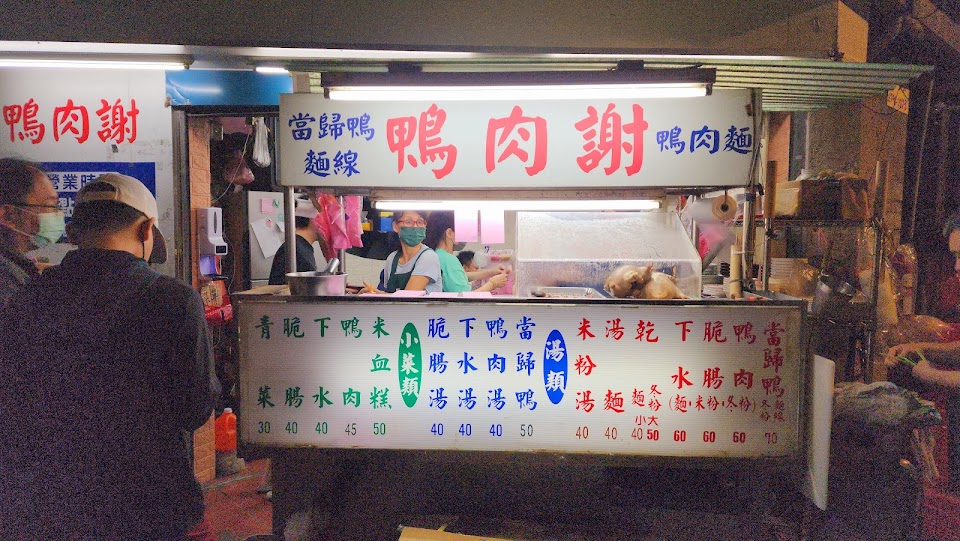 鴨肉謝
營業時
點
當歸鴨
麵線
鴨肉謝
鴨肉麵
當歸鴨 冬粉 麵線 70
鴨肉 60
脆腸 60
下水 60
(麵・米粉・冬粉)
乾 麵 冬粉 小40 大50
湯麵 40
米粉湯 40
湯類
當歸鴨 50
鴨肉湯 40
下水湯 40
脆腸湯 40
小菜類
米血糕 50
鴨肉 45
下水 40
脆腸 40
青菜 30